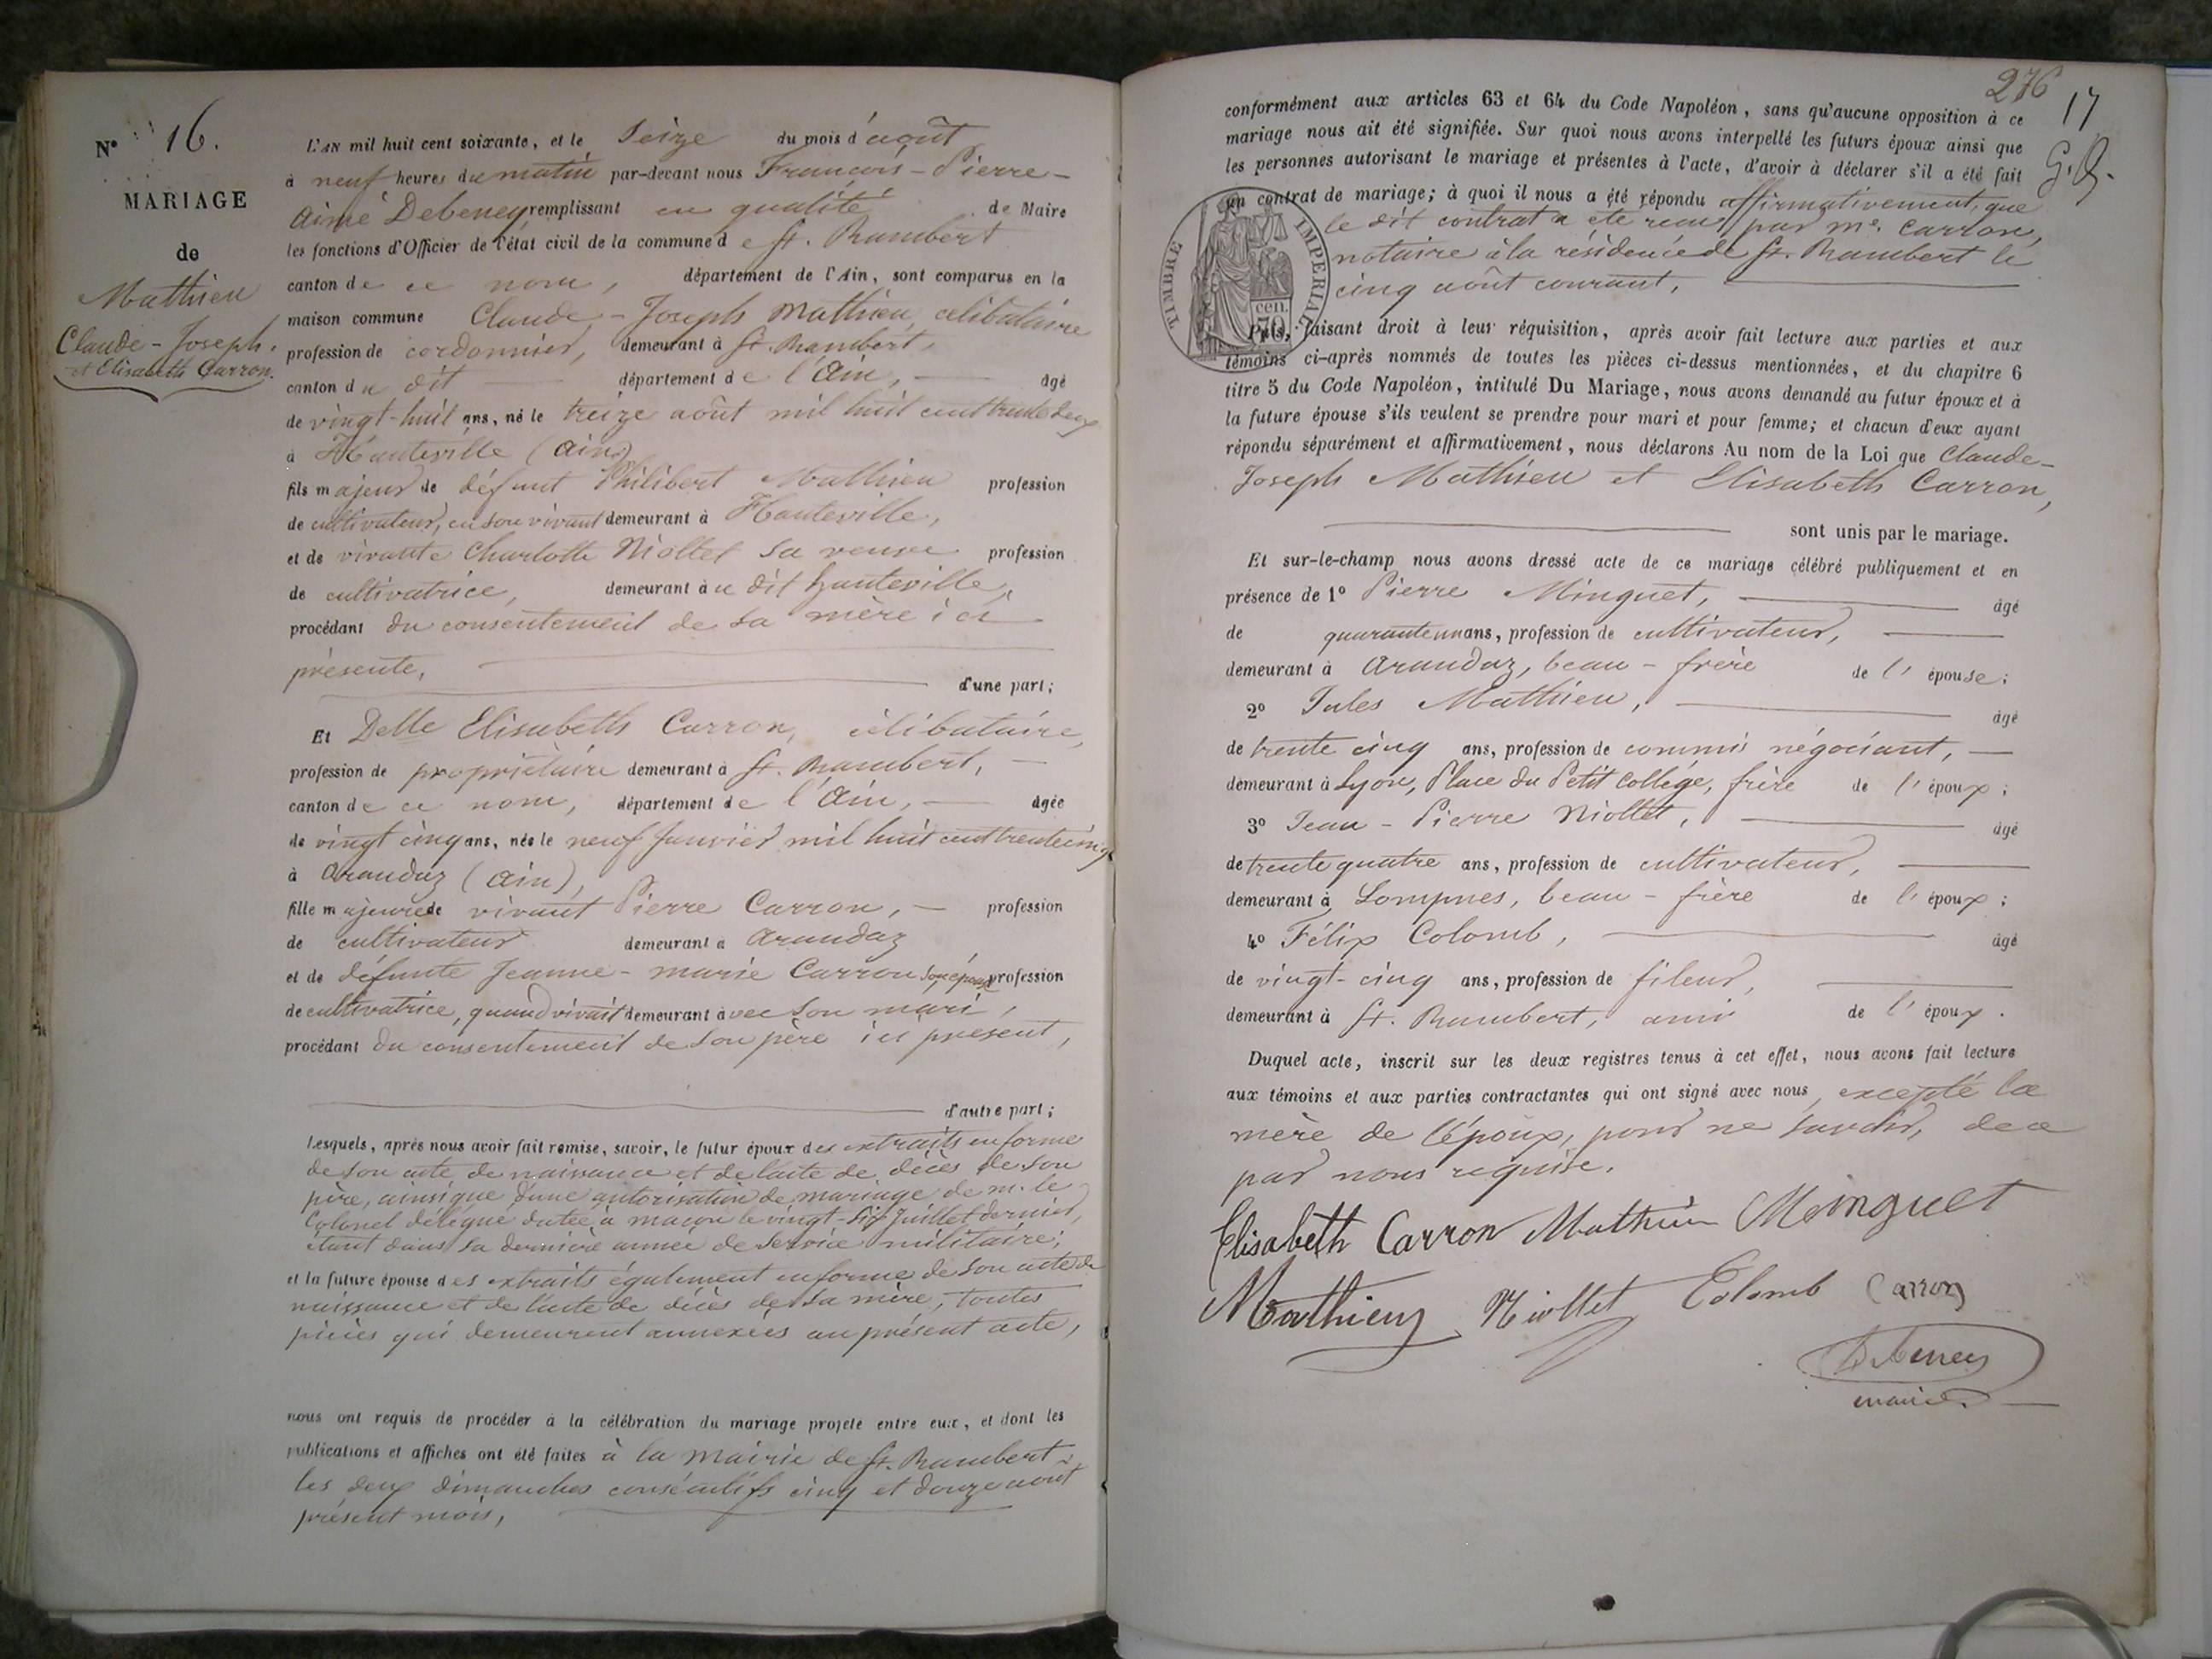 N° 16.
MARIAGE
de
Mathieu
Claude - Joseph.
et Elisabeth Carron.
L'AN mil huit cent soixante, et le Seize du mois d'août
à neuf heures du matin par-devant nous François - Pierre -
Aimé Debeney remplissant en qualité de Maire
les fonctions d'Officier de l'état civil de la commune de St. Rambert
canton de ce nom, département de l'Ain, sont comparus en la
maison commune Claude - Joseph Mathieu célibataire
profession de cordonnier, demeurant à St. Rambert,
canton du dit département de l'Ain, âgé
de vingt-huit ans, né le treize août mil huit cent trente deux
à Hauteville (Ain)
fils majeur de défunt Philibert Mathieu profession
de cultivateur, en son vivant demeurant à Hauteville,
et de vivante Charlotte Niollet sa veuve profession
de cultivatrice, demeurant à u dit hauteville,
procédant du consentement de sa mère ici
présente,
d'une part;
Et Delle Elisabeth Carron, célibataire,
profession de propriétaire demeurant à St. Rambert,
canton de ce nom, département de l'Ain, âgée
de vingt cinq ans, née le neuf Janvier mil huit cent trente cinq
à Arandaz (Ain),
fille majeure de vivant Pierre Carron, profession
de cultivateur demeurant à Arandaz
et de défunte Jeanne - marie Carron son épouse profession
de cultivatrice, quand vivait demeurant avec son mari,
procédant du consentement de son père ici présent,
d'autre part;
Lesquels, après nous avoir fait remise, savoir, le futur époux des extraits en forme
de son acte de naissance et de l'acte de décès de son
père, ainsi que d'une autorisation de mariage de m. le
Colonel délégué datée à macon le vingt-six Juillet dernier,
étant dans sa dernière année de service militaire;
et la future épouse des extraits également en forme de son acte de
naissance et de l'acte de décès de sa mère, toutes
pièces qui demeurent annexées au présent acte,
nous ont requis de procéder à la célébration du mariage projeté entre eux, et dont les
publications et affiches ont été faites à la mairie de St. Rambert
les deux dimanches consécutifs cinq et douze août
présent mois,
276
17
G. D.
conformément aux articles 63 et 64 du Code Napoléon, sans qu'aucune opposition à ce
mariage nous ait été signifiée. Sur quoi nous avons interpellé les futurs époux ainsi que
les personnes autorisant le mariage et présentes à l'acte, d'avoir à déclarer s'il a été fait
un contrat de mariage; à quoi il nous a été répondu affirmativement, que
le dit contrat a été reçu par me. Carron,
notaire à la résidence de St. Rambert le
cinq août courant,
TIMBRE IMPERIAL
70 cen.
Puis, faisant droit à leur réquisition, après avoir fait lecture aux parties et aux
témoins ci-après nommés de toutes les pièces ci-dessus mentionnées, et du chapitre 6
titre 5 du Code Napoléon, intitulé Du Mariage, nous avons demandé au futur époux et à
la future épouse s'ils veulent se prendre pour mari et pour femme; et chacun d'eux ayant
répondu séparément et affirmativement, nous déclarons Au nom de la Loi que Claude -
Joseph Mathieu et Elisabeth Carron,
sont unis par le mariage.
Et sur-le-champ nous avons dressé acte de ce mariage célébré publiquement et en
présence de 1° Pierre Minguet, âgé
de quarante un ans, profession de cultivateur,
demeurant à Arandaz, beau - frère de l'épouse;
2° Jules Mathieu, âgé
de trente cinq ans, profession de commis négociant,
demeurant à Lyon, Place du Petit Collège, frère de l'époux;
3° Jean - Pierre Niollet, âgé
de trente quatre ans, profession de cultivateur,
demeurant à Lompnes, beau - frère de l'époux;
4° Félix Colomb, âgé
de vingt-cinq ans, profession de fileur,
demeurant à St. Rambert, ami de l'époux.
Duquel acte, inscrit sur les deux registres tenus à cet effet, nous avons fait lecture
aux témoins et aux parties contractantes qui ont signé avec nous, excepté la
mère de l'époux, pour ne savoir, de ce
par nous requise.
Elisabeth Carron Mathieu Minguet
Mathieu Niollet Colomb Carron
Debeney
maire